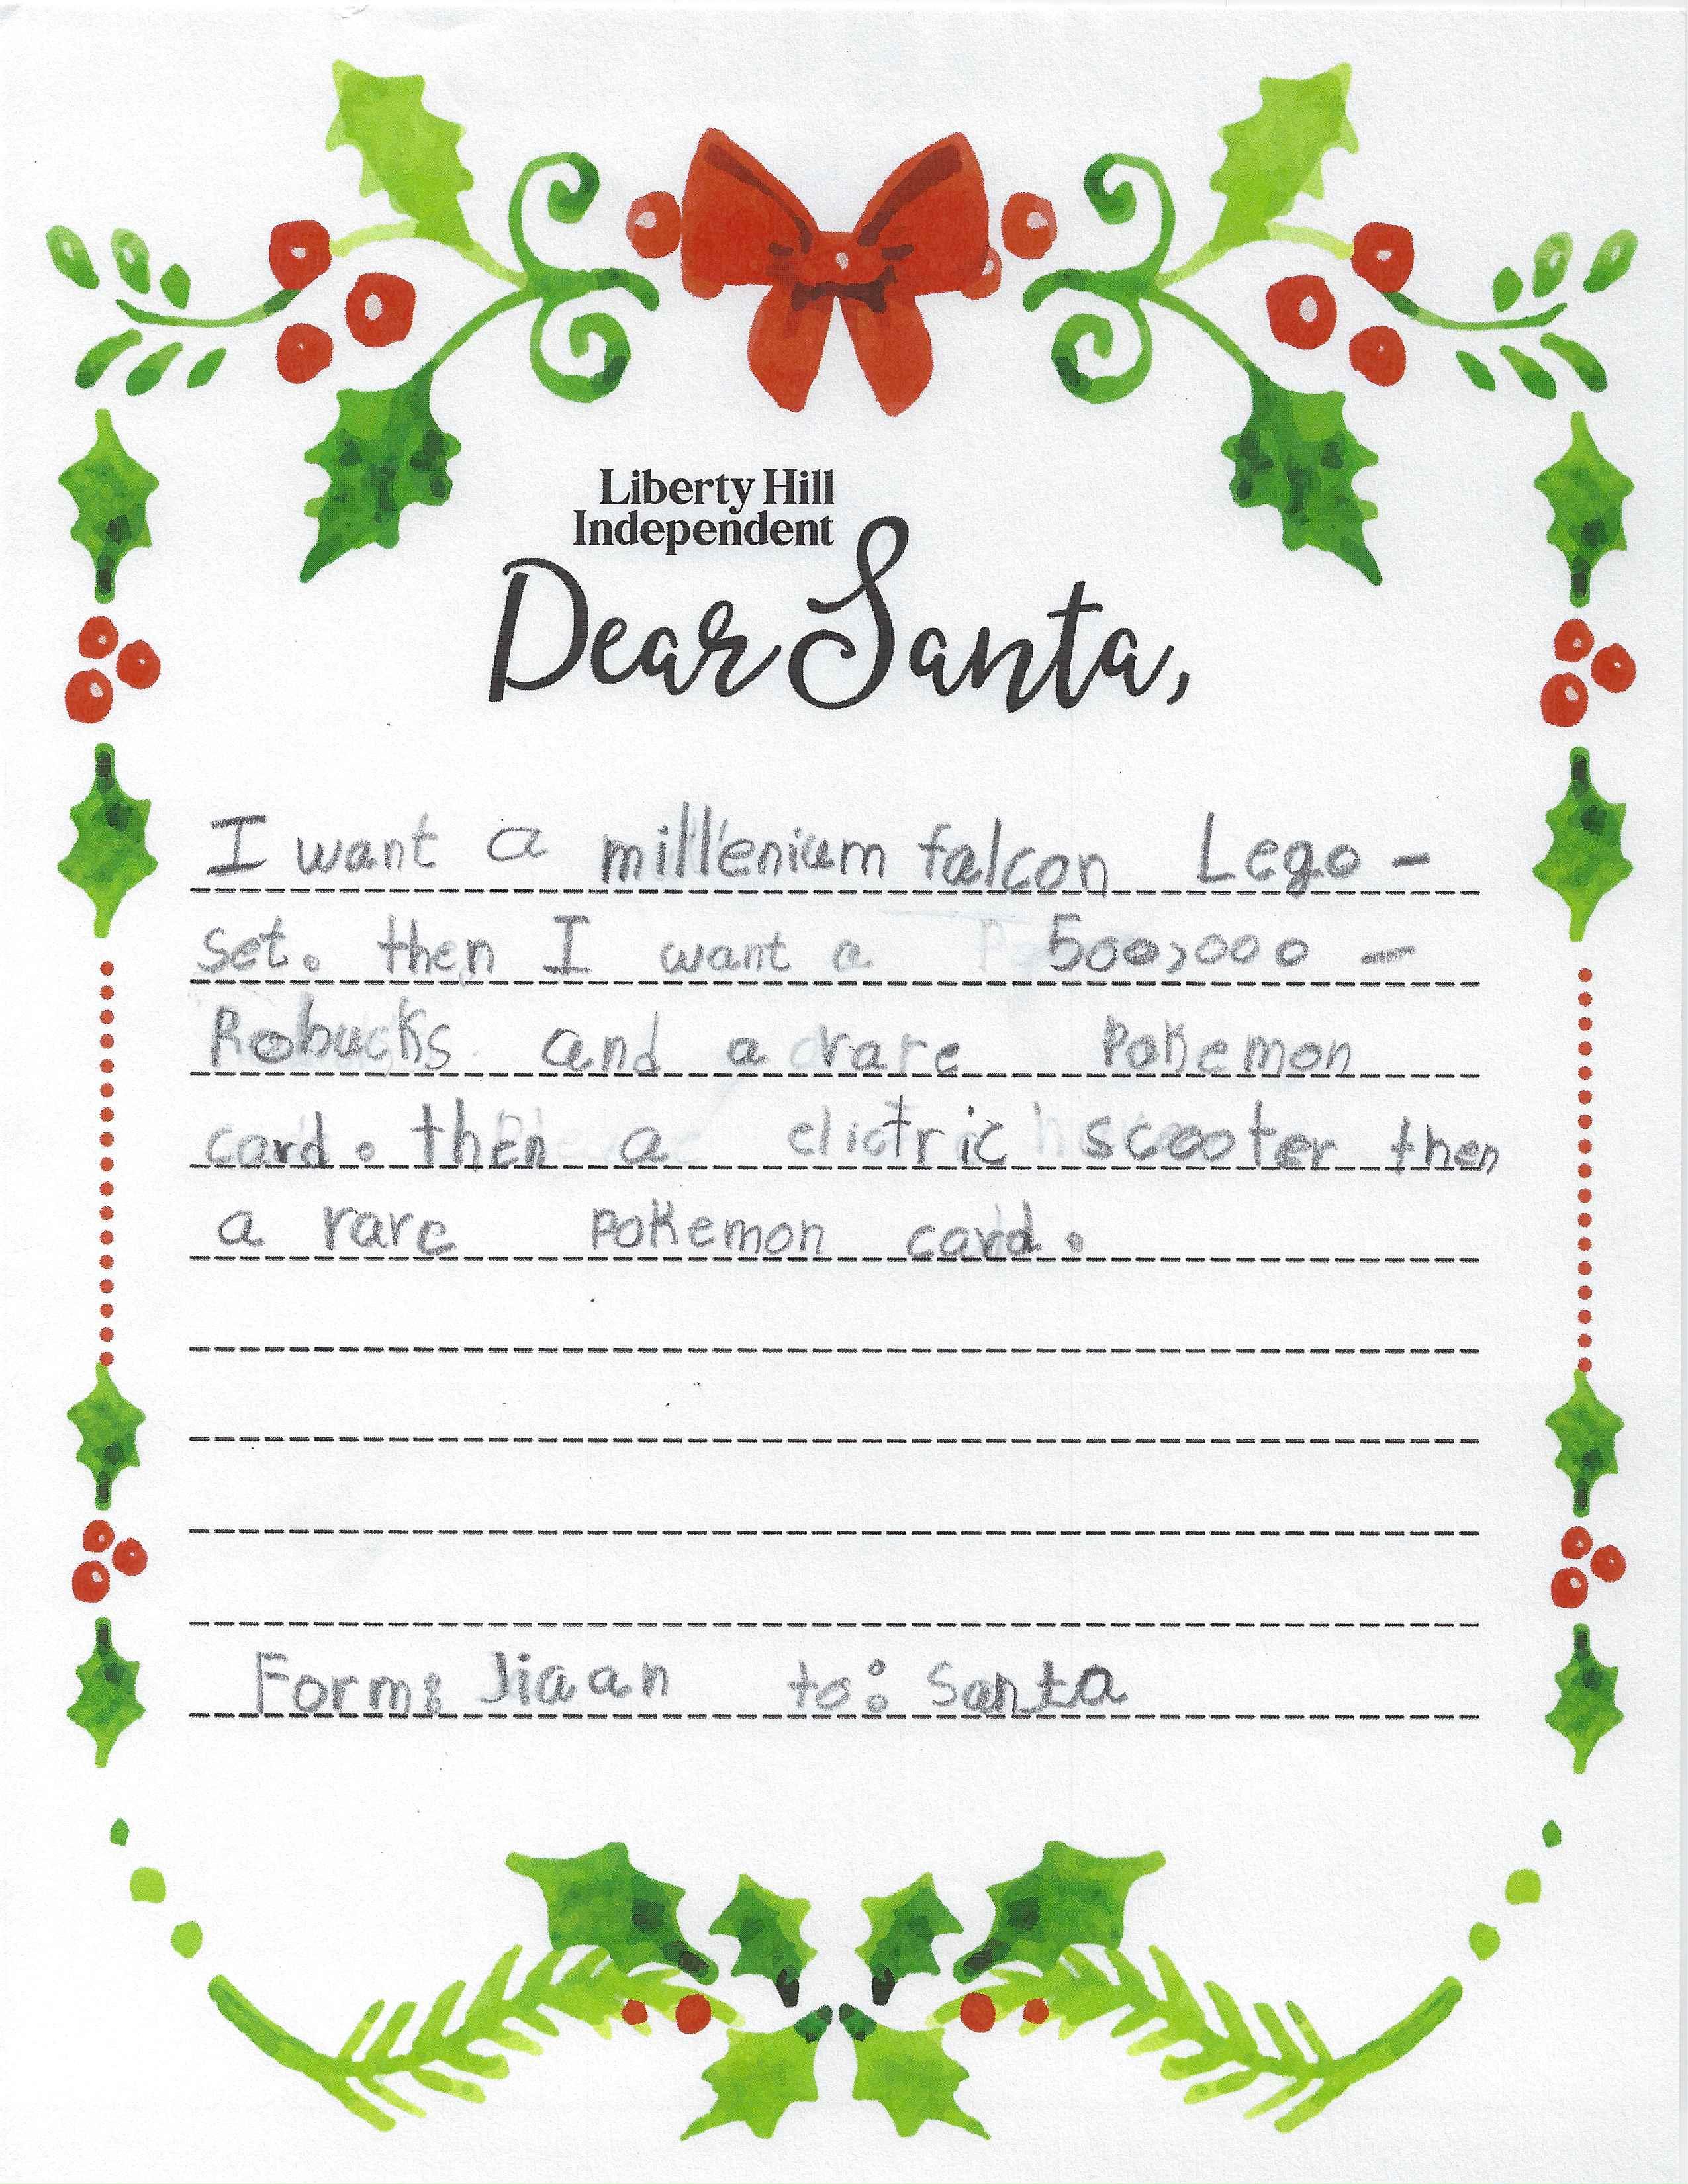 Liberty Hill
Independent
Dear Santa,
I want a millenium falcon Lego -
set. then I want a 500,000 -
Robucks and a rare Pokemon
card. then a elictric scooter then
a rare pokemon card.
Form: Jiaan to: Santa